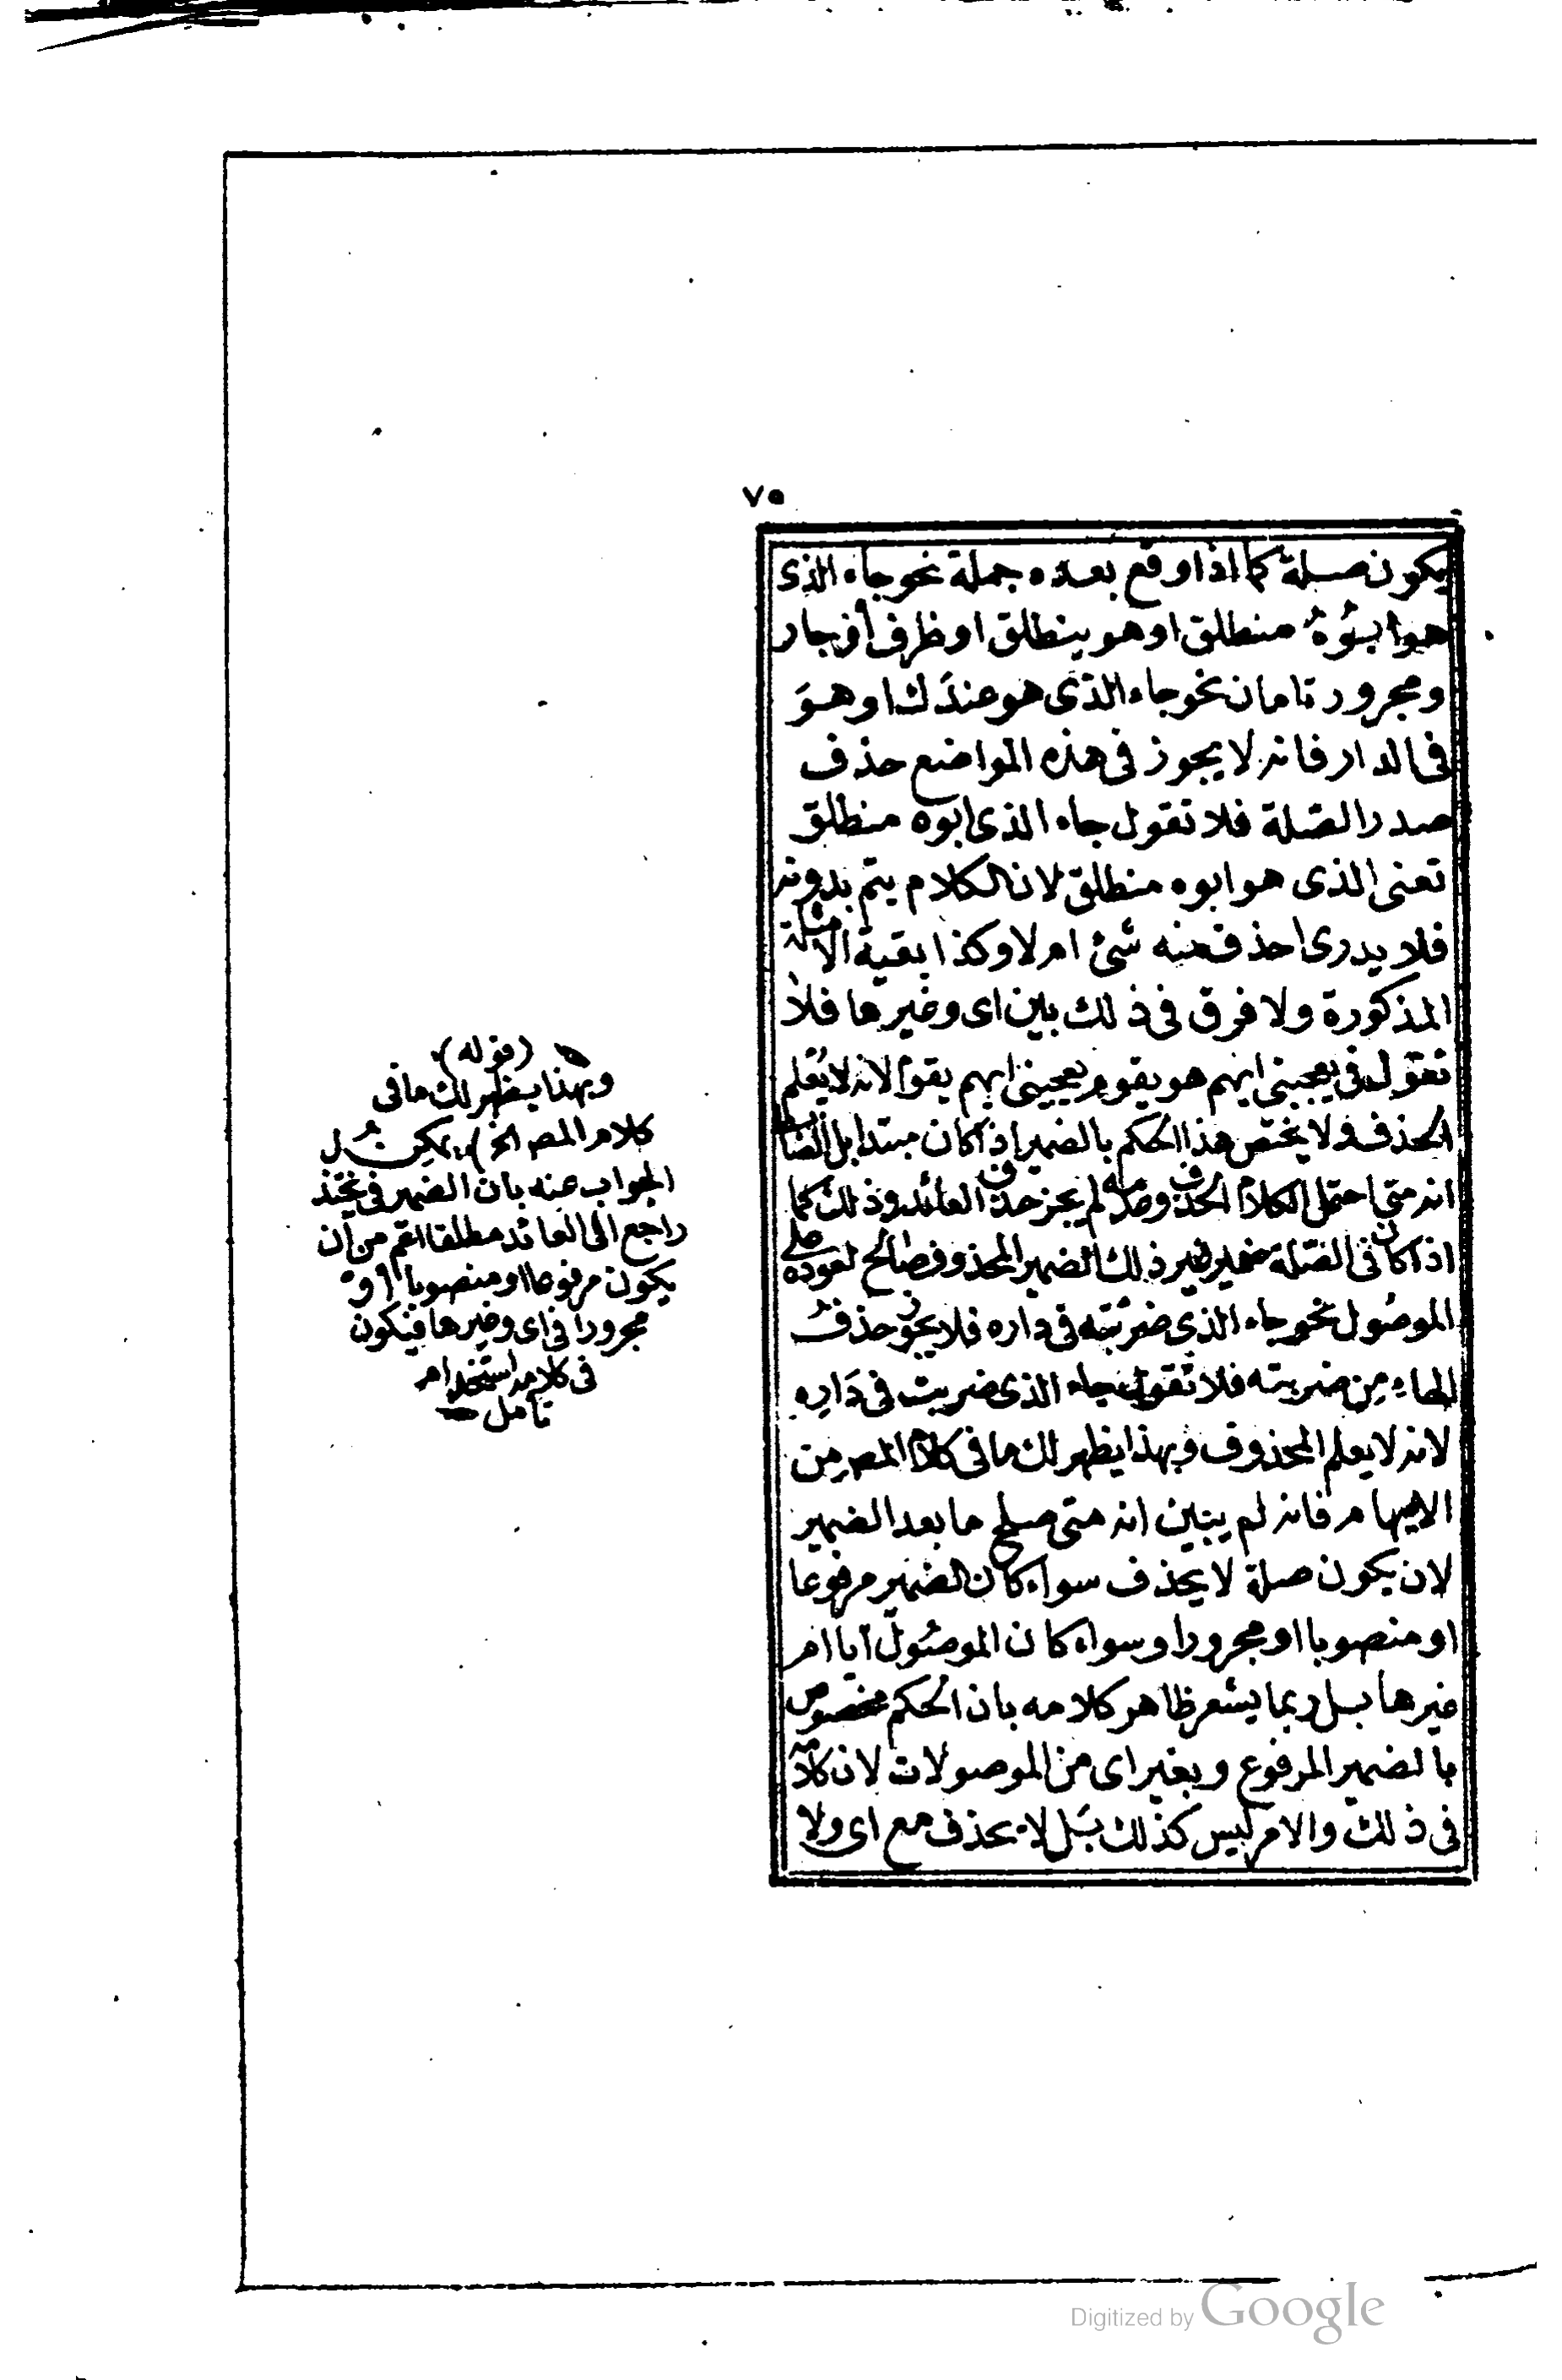 ٧٥
يكون صلة كما اذا وقع بعده جملة نحو جاء الذى
هو ابوه منطلق او هو ينطلق او ظرف او جار
ومجرور تامان نحو جاء الذى هو عندك او هو
فى الدار فانه لا يجوز فى هذه المواضع حذف
صدر الصلة فلا تقول جاء الذى ابوه منطلق
تعنى الذى هو ابوه منطلق لان الكلام يتم بدونه
فلا يدرى احذف منه شئ ام لا وكذا بقية الامثلة
المذكورة ولا فرق فى ذلك بين اى وغيرها فلا
تقول فى يعجبنى ايهم هو يقوم يعجبنى ايهم يقوم لانه لا يعلم
الحذف ولا يختص هذا الحكم بالضمير اذا كان مبتدا بل الضابط
انه متى احتمل الكلام الحذف وعدمه لم يجز حذف العائد وذلك كما
اذا كان فى الصلة ضمير غير ذلك الضمير المحذوف صالح لعوده على
الموصول نحو جاء الذى ضربته فى داره فلا يجوز حذف
الهاء من ضربته فلا تقول جاء الذى ضربت فى داره
لانه لا يعلم المحذوف وبهذا يظهر لك ما فى كلام المصر من
الابهام فانه لم يبين انه متى صلح ما بعد الضمير
لان يكون صلة لا يحذف سواء كان الضمير مرفوعا
او منصوبا او مجرورا وسواء كان الموصول ايا ام
غيرها بل ربما يشعر ظاهر كلامه بان الحكم مخصوص
بالضمير المرفوع وبغير اى من الموصولات لان كلامه
فى ذلك والامر ليس كذلك بل لا يحذف مع اى ولا
(قوله)
وبهذا يظهر لك ما فى
كلام المصر الخ) يمكن
الجواب عنه بان الضمير فى
راجع الى العائد مطلقا اعم من ان
يكون مرفوعا او منصوبا او
مجرورا فى اى وغيرها فيكون
فى كلامه استخدام
تامل
Digitized by Google